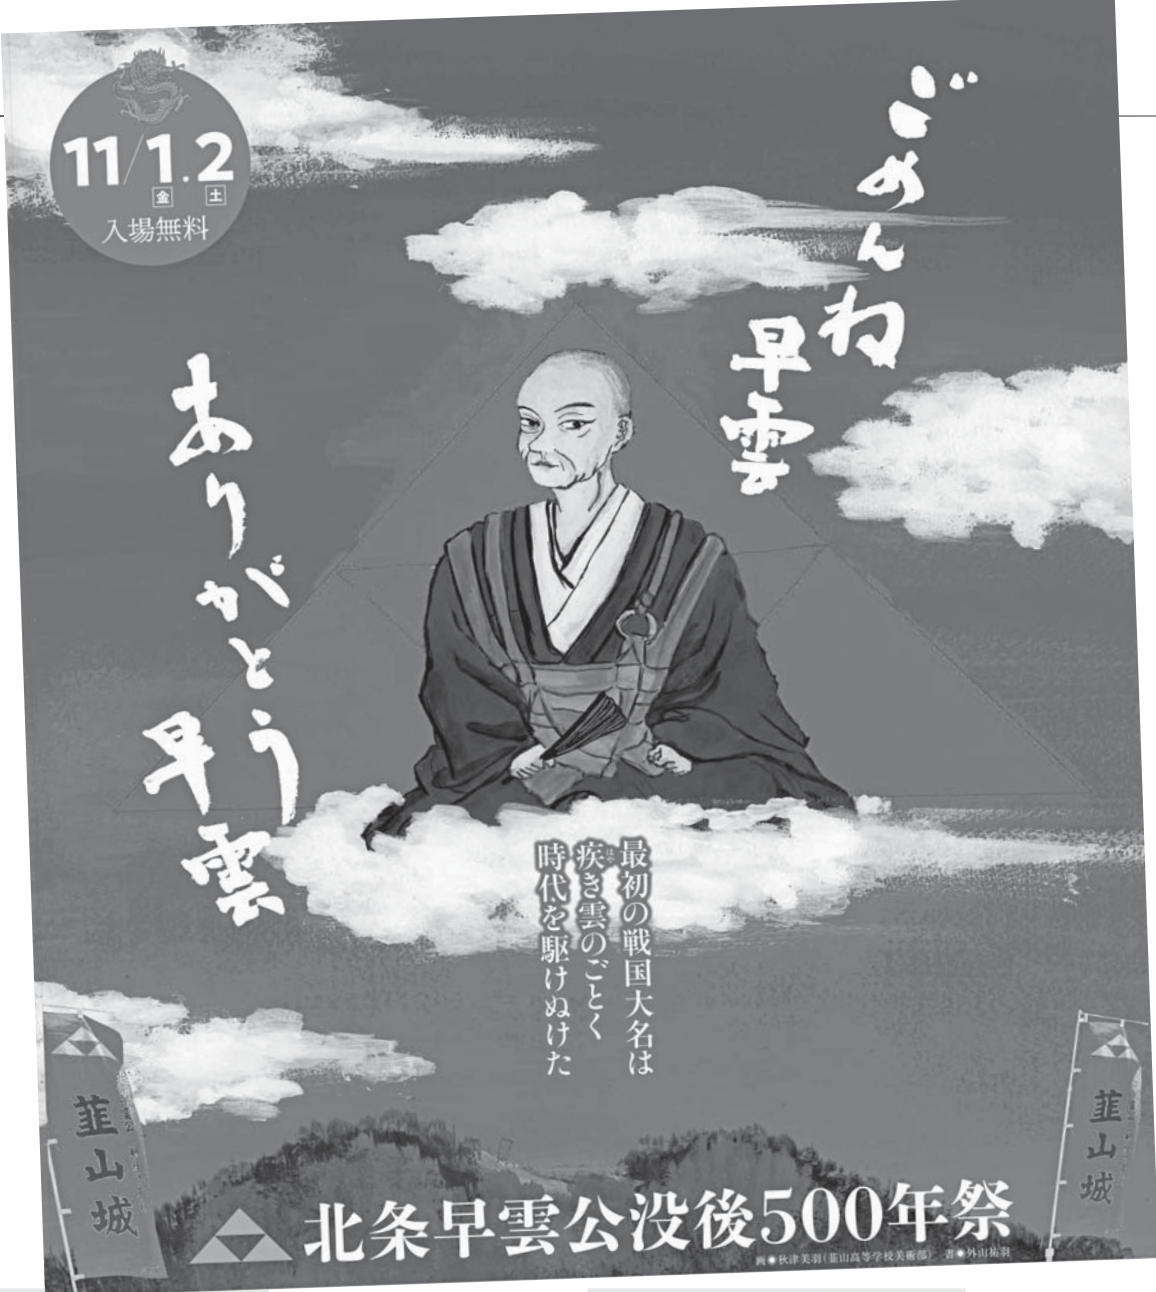 11/1.2
金 土
入場無料
ごめんね
早雲
ありがとう
早雲
最初の戦国大名は
疾き雲のごとく
はや
時代を駆けぬけた
韮山城
韮山城
北条早雲公没後500年祭
画●秋津美羽(韮山高等学校美術部) 書●外山祐羽